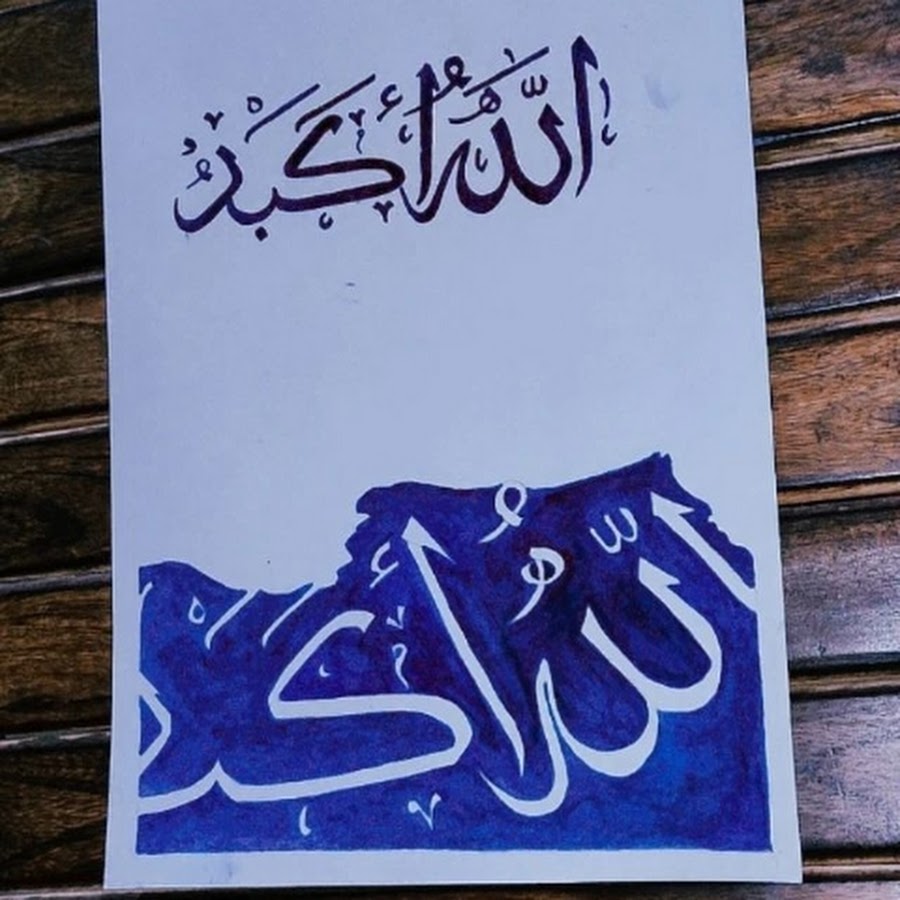 اللّٰهُ أَكْبَرُ
اللّٰهُ أَكْبَر